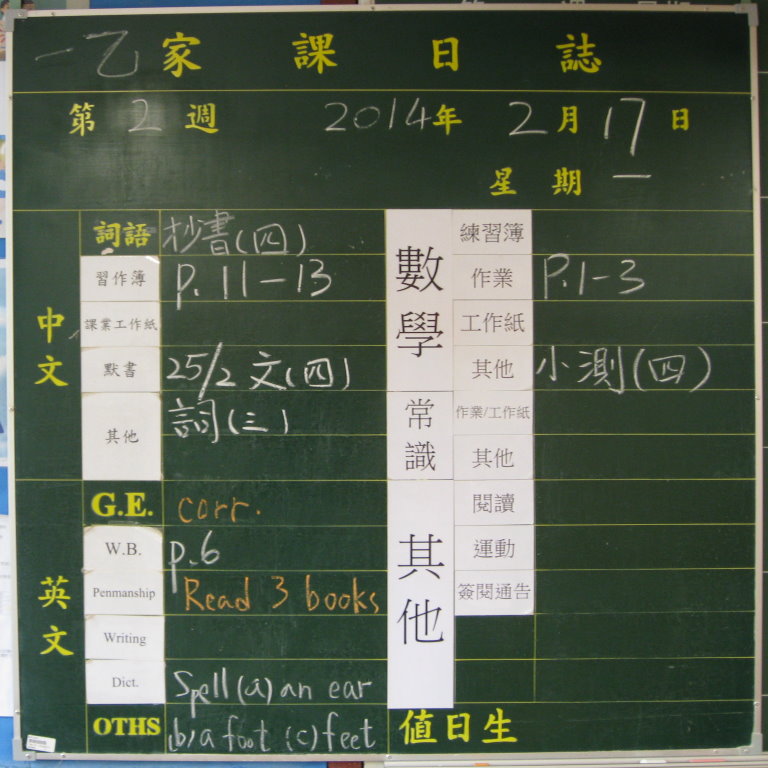 一乙家課日誌
第2週 2014年2月17日
星期一
中文
詞語 抄書(四)
習作簿 p.11-13
課業工作紙
默書 25/2 文(四)
其他 詞(三)
英文
G.E. corr.
W.B. p.6
Penmanship Read 3 books
Writing
Dict. Spell (a) an ear
OTHS (b) a foot (c) feet
數學
練習簿
作業 P.1-3
工作紙
其他 小測(四)
常識
作業/工作紙
其他
其他
閱讀
運動
簽閱通告
值日生